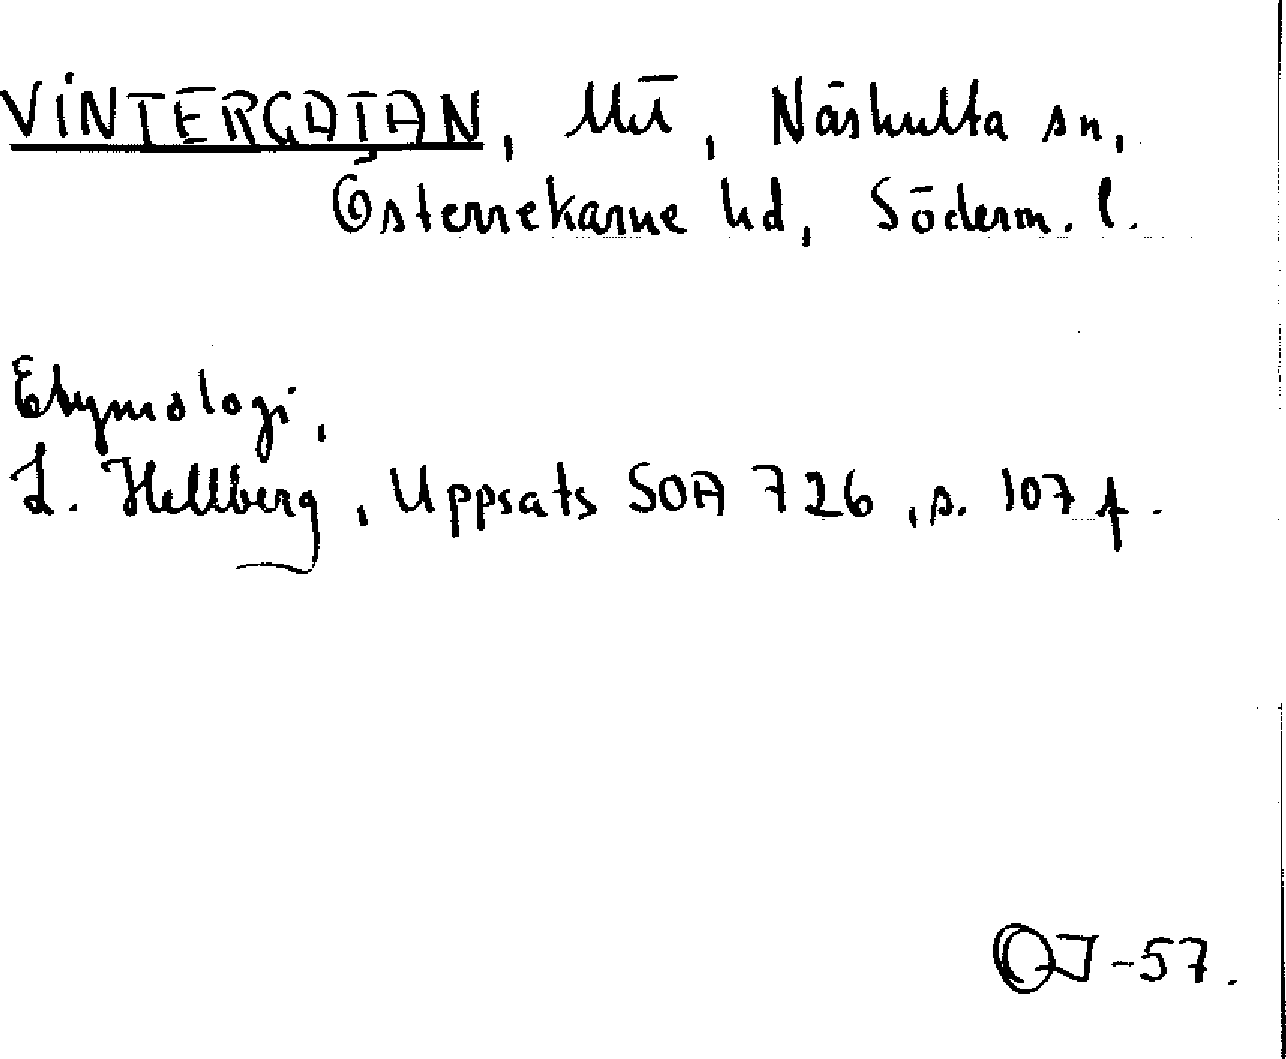 VINTERGATAN, Näshulta sn,
Österrekarne hd, Söderm. l.
Etymologi,
L. Hellberg, Uppsats SOA 726, s. 107 f.
-57.